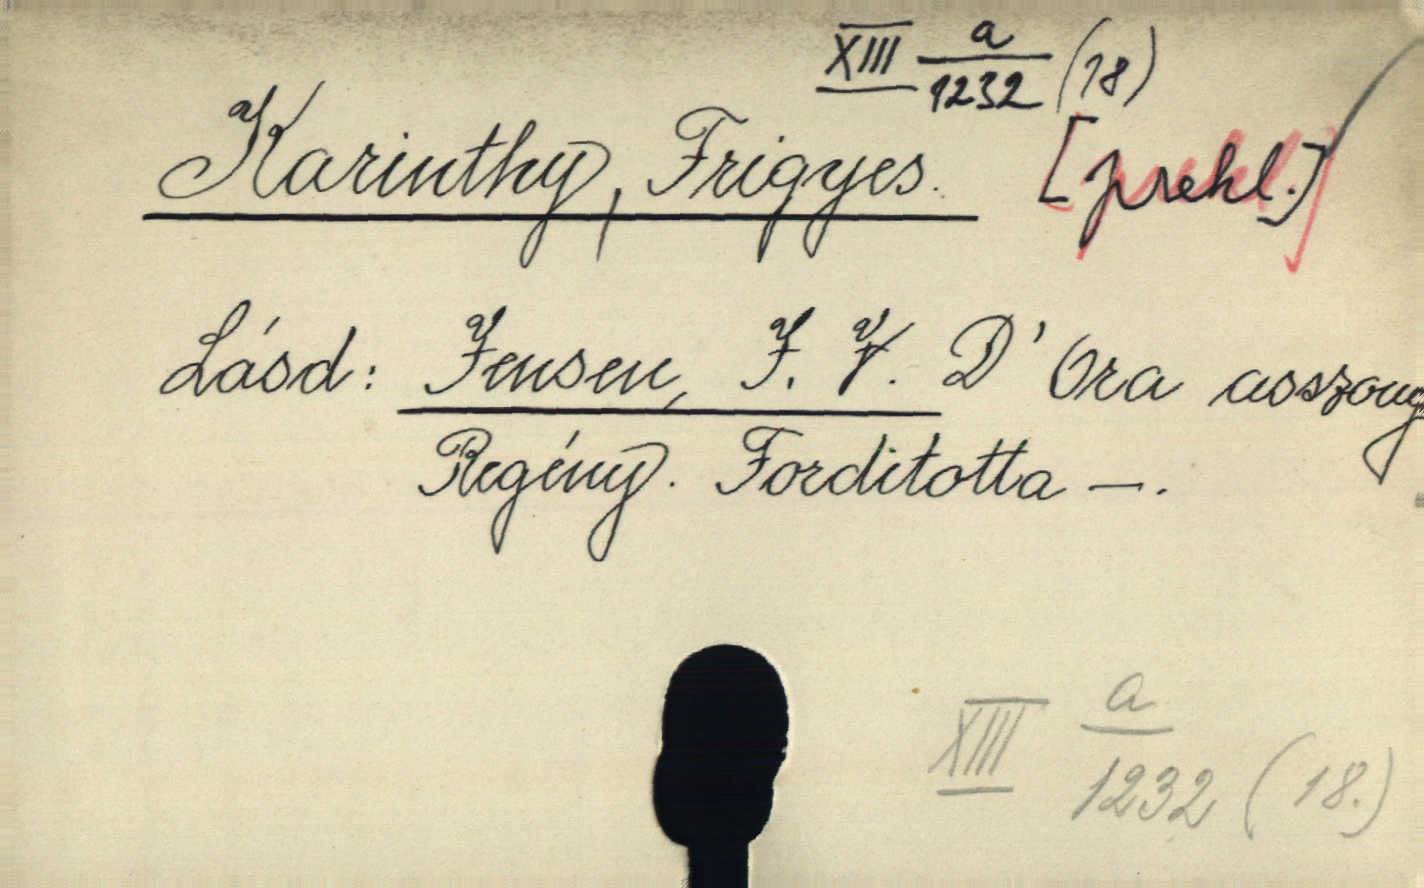 XIII a/1232 (18)
Karinthy, Frigyes. [prekl.]
Lásd: Jensen, J. V. D'Ora asszony
Regény. Forditotta —.
XIII a/1232 (18.)